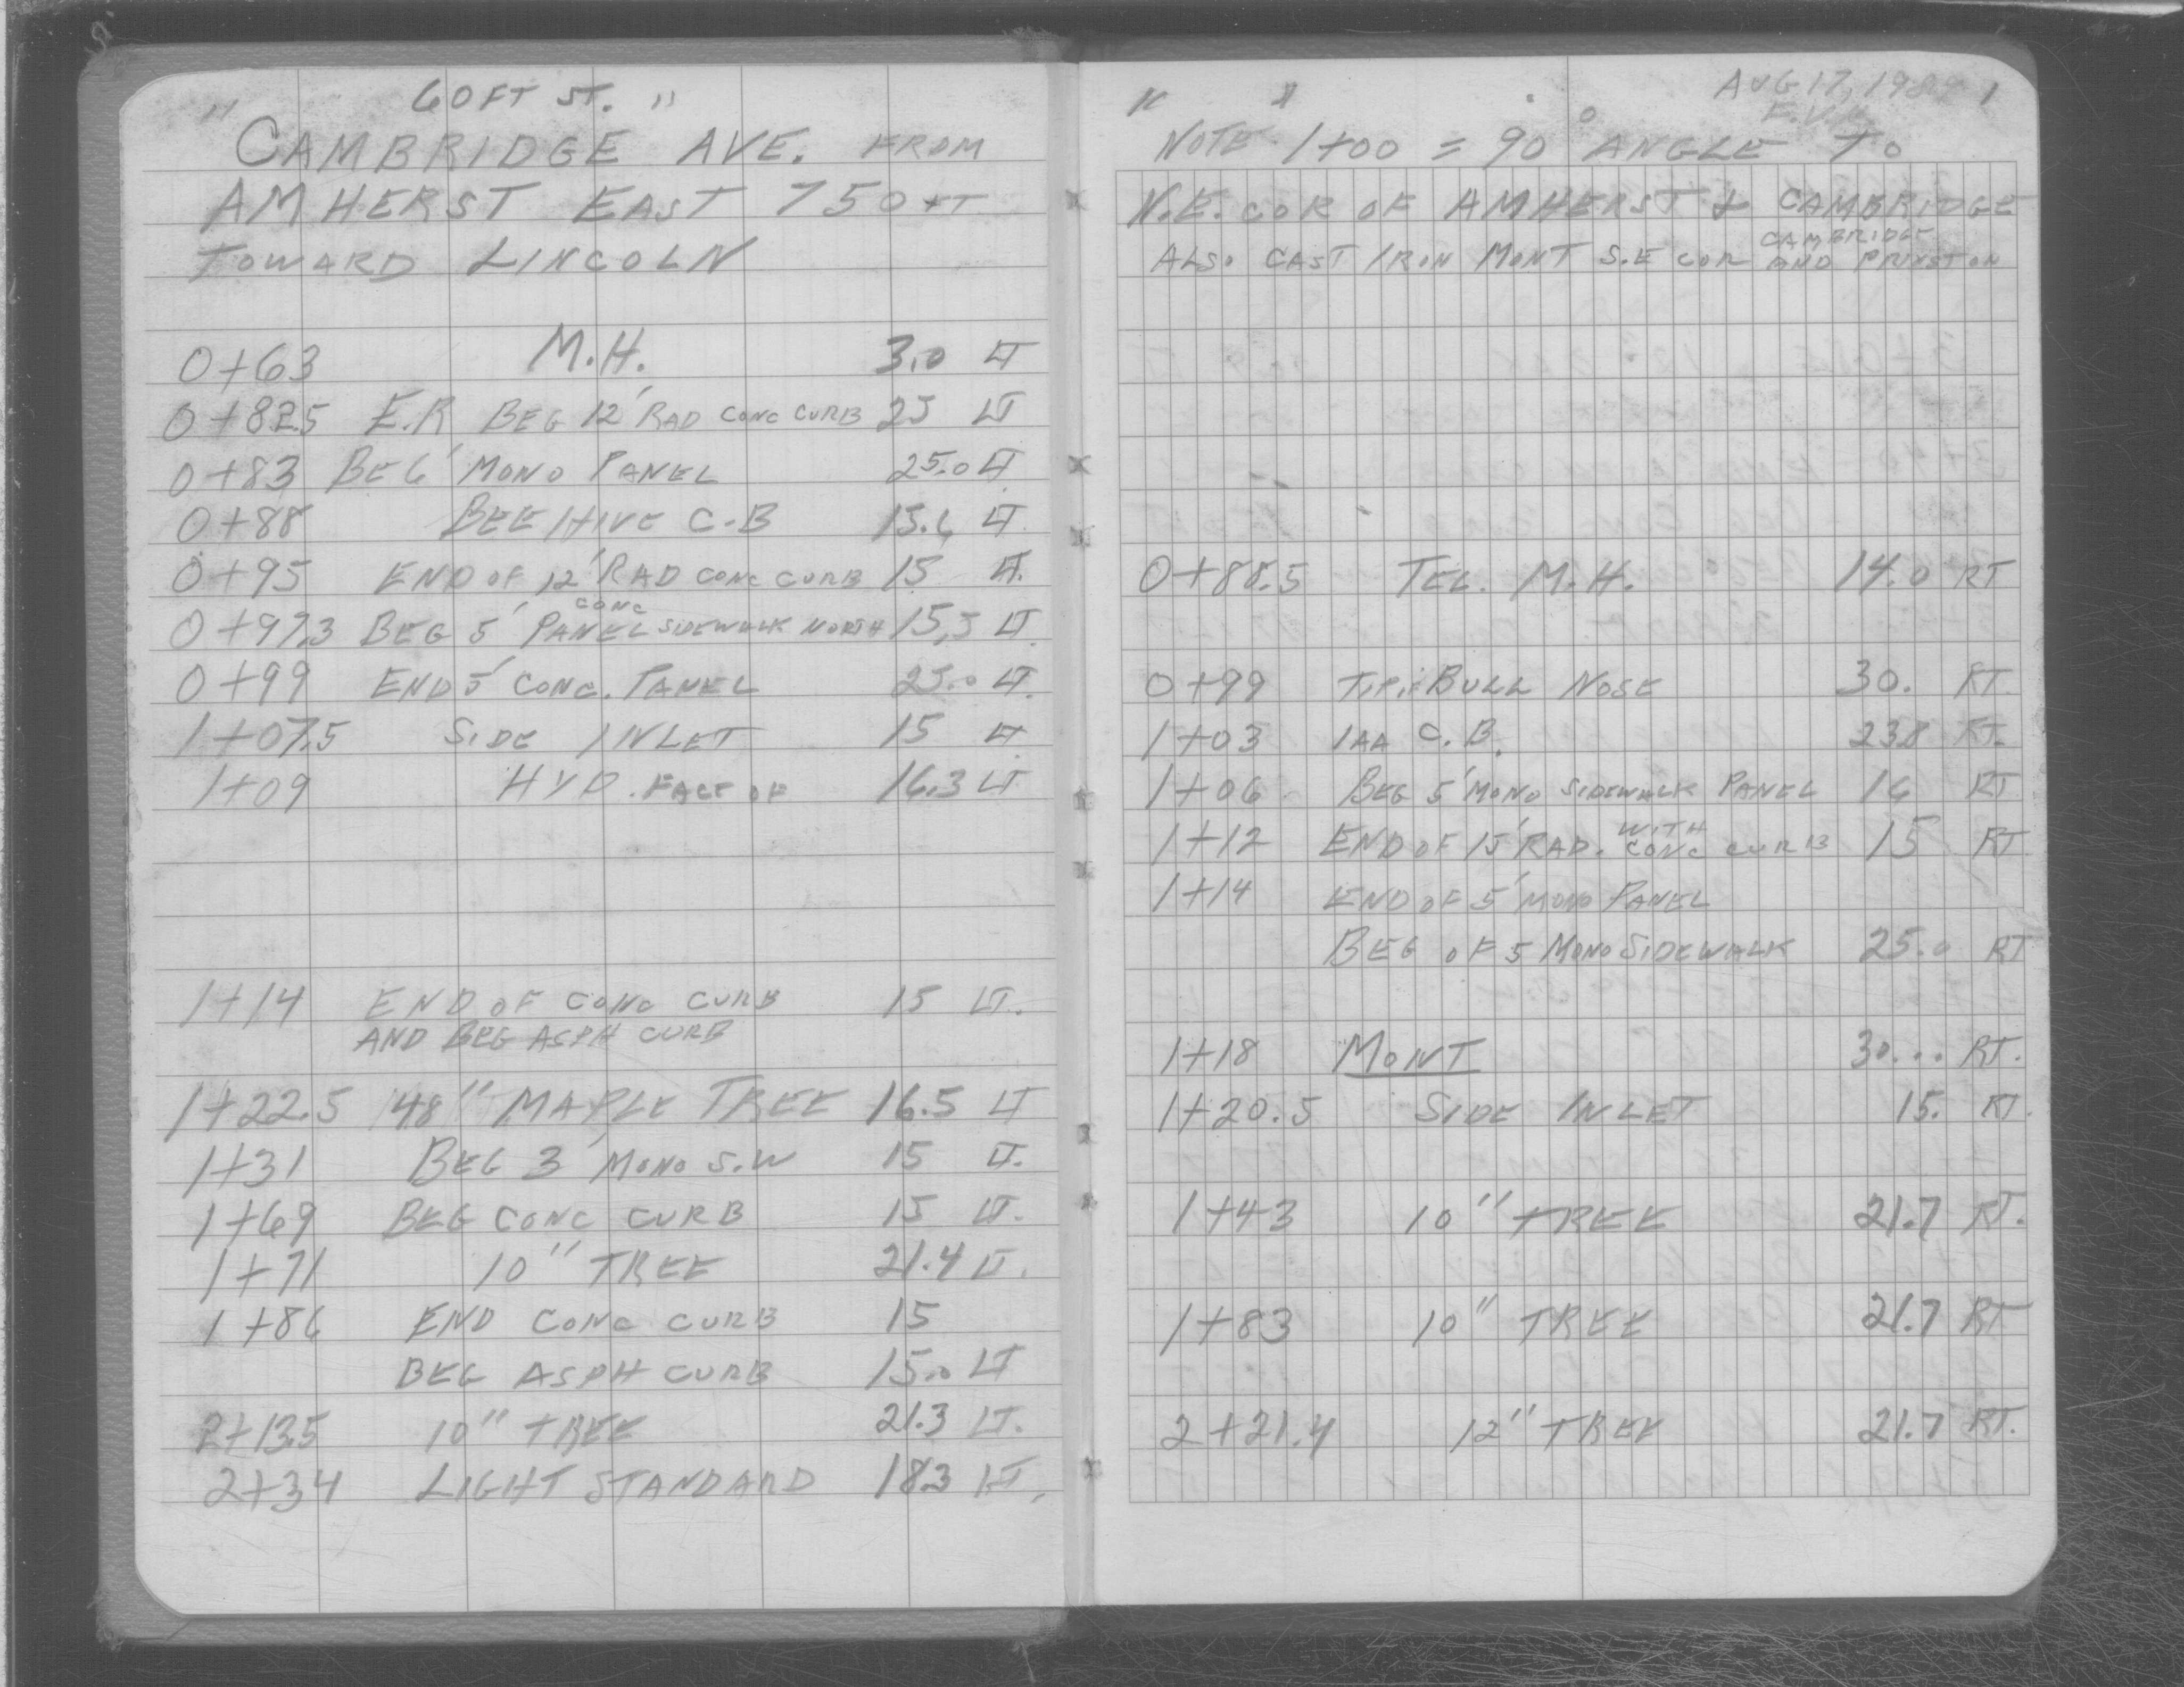 " 60 FT ST. "
CAMBRIDGE AVE. FROM
AMHERST EAST 750 FT
TOWARD LINCOLN
0+63 M.H. 3.0 LT
0+82.5 E.R BEG 12' RAD CONC CURB 25 LT
0+83 BEG MONO PANEL 25.0 LT
0+88 BEE HIVE C.B 15.6 LT
0+95 END OF 12' RAD CONC CURB 15 LT.
0+97.3 BEG 5' CONC PANEL SIDEWALK NORTH 15.5 LT
0+99 END 5' CONC. PANEL 25.0 LT.
1+07.5 SIDE INLET 15 LT
1+09 HYD. FACE OF 16.3 LT
1+14 END OF CONC CURB 15 LT.
AND BEG ASPH CURB
1+22.5 48" MAPLE TREE 16.5 LT
1+31 BEG 3' MONO S.W 15 LT.
1+69 BEG CONC CURB 15 LT.
1+71 10" TREE 21.4 LT.
1+86 END CONC CURB 15
BEG ASPH CURB 15.0 LT
2+13.5 10" TREE 21.3 LT.
2+34 LIGHT STANDARD 18.3 LT.
" " AUG 17, 1
NOTE 1+00 = 90° ANGLE TO
N.E. COR OF AMHERST & CAMBRIDGE
ALSO CAST IRON MONT S.E COR CAMBRIDGE AND PRINSTON
0+88.5 TEL. M.H. 14.0 RT
0+99 BULL NOSE 30. RT.
1+03 1AA C.B. 23.8 RT.
1+06 BEG 5' MONO SIDEWALK PANEL 16 RT
1+12 END OF 15' RAD. WITH CONC CURB 15 RT
1+14 END OF 5' MONO PANEL
BEG OF 5 MONO SIDEWALK 25.0 RT
1+18 MONT 30... RT.
1+20.5 SIDE INLET 15. RT.
1+43 10" TREE 21.7 RT.
1+83 10" TREE 21.7 RT
2+21.4 12" TREE 21.7 RT.